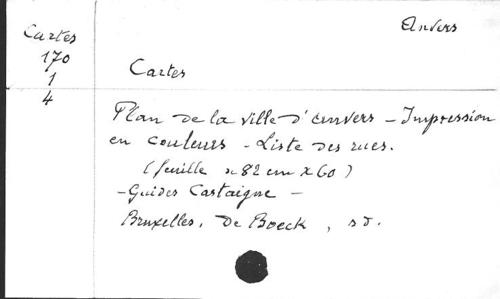 Anvers
Cartes
170
1
4
Cartes
Plan de la ville d'Anvers - Impression
en couleurs - Liste des rues.
(feuille de 82 cm x 60)
- Guides Castaigne -
Bruxelles, De Boeck, s d.